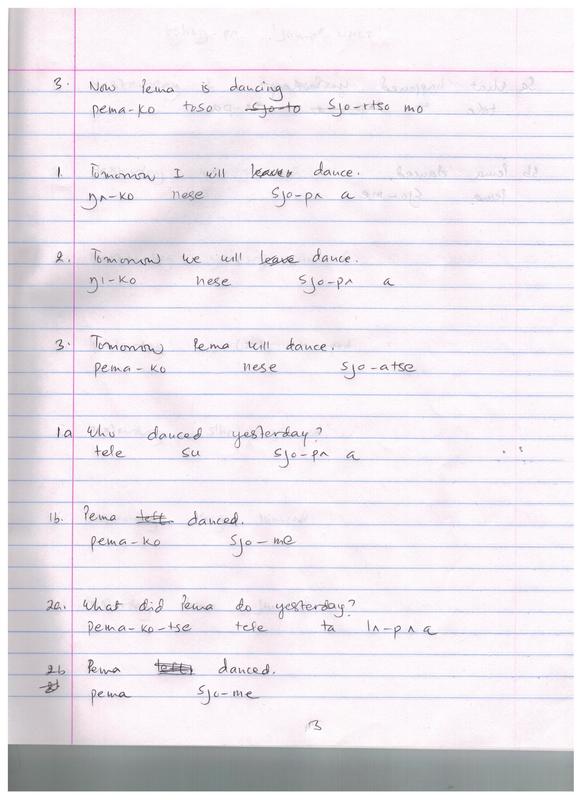 3. Now Pema is dancing
pema-ko toso sjo-to sjo-rtso mo
1. Tomorrow I will leave dance.
ŋʌ-ko nese sjo-pʌ a
2. Tomorrow we will leave dance.
ŋi-ko nese sjo-pʌ a
3. Tomorrow Pema will dance.
pema-ko nese sjo-atse
1a Who danced yesterday?
tele su sjo-pʌ a
1b. Pema left danced.
pema-ko sjo-me
2a. What did Pema do yesterday?
pema-ko-tse tele ta lʌ-pʌ a
2b Pema left danced.
pema sjo-me
3